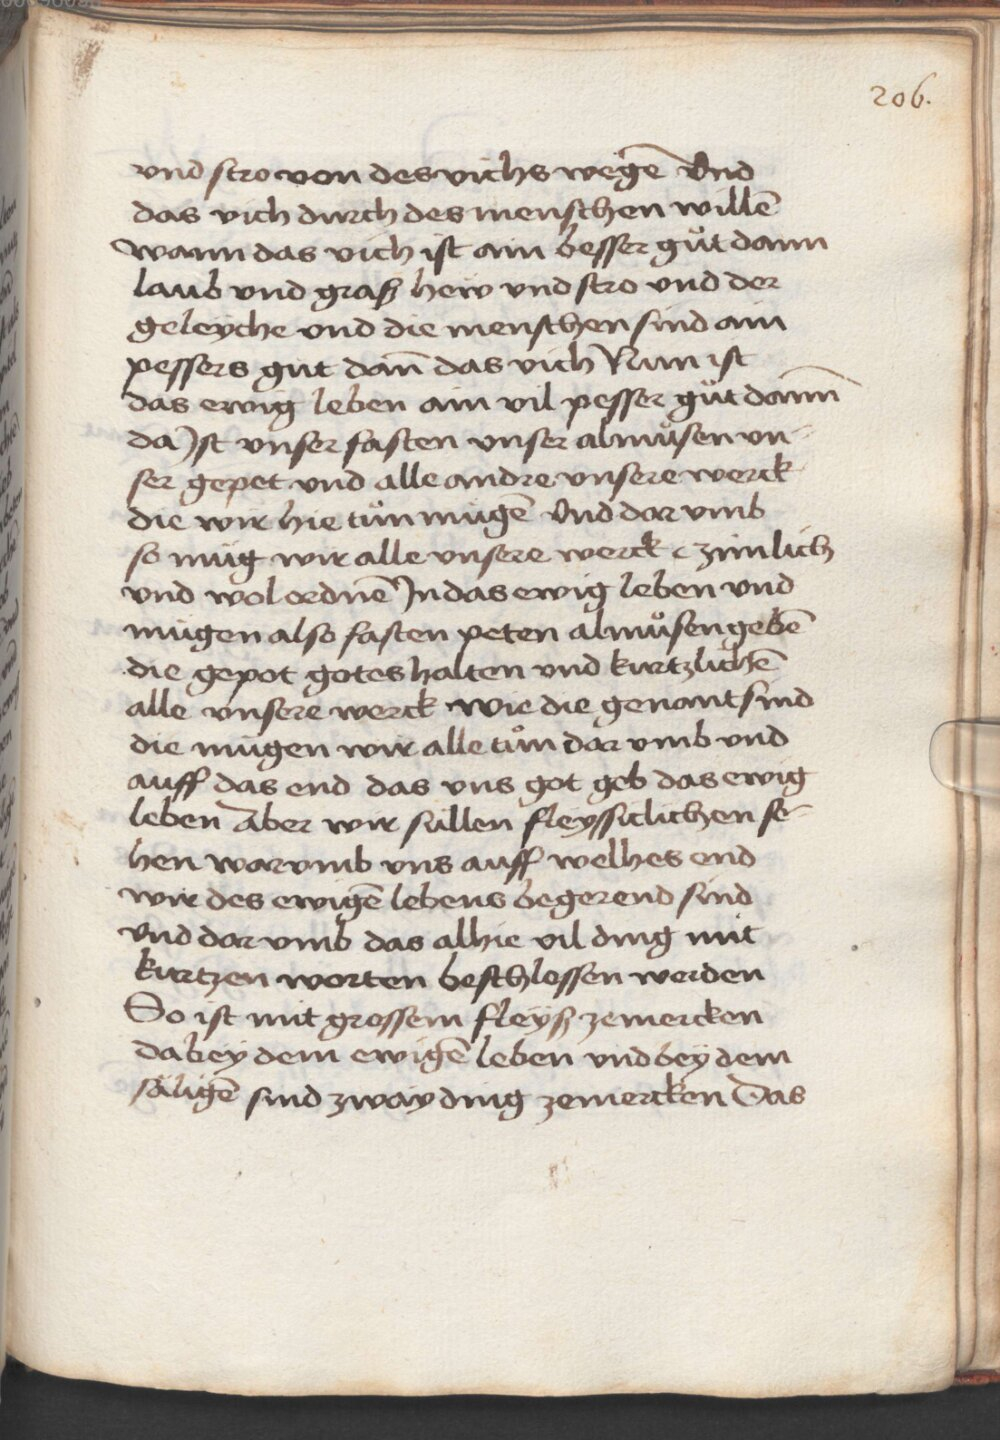 206.
vnd stro von des vichs wegē Vnd
das vich durch des menschen willē
wann das vich ist ain besser gůt dann
laub vnd graß hew vnd stro vnd der
geleyche vnd die menschen sind ain
pessers gut dan̄ das vich Nun ist
das ewig leben ain vil pesser gůt dann̄
da Jst vnser fasten vnser almůsen vn-
ser gepet vnd alle andre vnsere werck
die wir hie tůn mugē Vnd dar vmb
so mug wir alle vnsere werck zimlich
vnd wol ordnē Jn das ewig leben vnd
mugen also fasten peten almůsen gebē
die gepot gotes halten vnd kurtzlichē
alle vnsere werck wie die genant sind
die mugen wir alle tůn dar vmb vnd
auff das end das vns got geb das ewig
leben Aber wir sullen fleyssiclichen se-
hen war vmb vns auff welhes end
wir des ewigē lebens begerend sind
Vnd dar vmb das alhie vil ding mit
kurtzen worten beschlossen werden
So ist mit grossem fleyß zemercken
da bey dem ewigē leben vnd bey dem
säligē sind zway ding zemercken Das